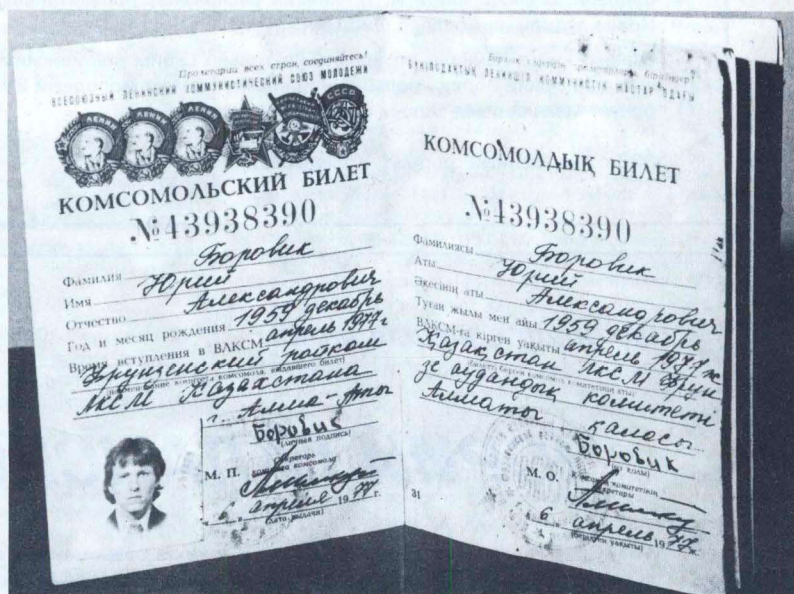 Пролетарии всех стран, соединяйтесь!
ВСЕСОЮЗНЫЙ ЛЕНИНСКИЙ КОММУНИСТИЧЕСКИЙ СОЮЗ МОЛОДЕЖИ
ЛЕНИН ЛЕНИН ЛЕНИН СССР
КОМСОМОЛЬСКИЙ БИЛЕТ
№43938390
Фамилия Боровик
Имя Юрий
Отчество Александрович
Год и месяц рождения 1959 декабрь
Время вступления в ВЛКСМ апрель 1977 г
Фрунзенский райком
(наименование комитета комсомола, выдавшего билет)
ЛКСМ Казахстана
г. Алма-Аты
Боровик
(личная подпись)
М. П. Секретарь
комитета комсомола
6 апреля 1977 г.
(дата выдачи)
Барлық елдердің пролетарлары, бірігіңдер!
БҮКІЛОДАҚТЫҚ ЛЕНИНШІЛ КОММУНИСТІК ЖАСТАР ОДАҒЫ
КОМСОМОЛДЫҚ БИЛЕТ
№43938390
Фамилиясы Боровик
Аты Юрий
Әкесінің аты Александрович
Туған жылы мен айы 1959 декабрь
ВЛКСМ-ға кірген уақыты апрель 1977 ж
Қазақстан ЛКСМ Фрун
(билет берген комсомол комитетінің аты)
зе аудандық комитеті
Алматы қаласы
Боровик
(өз қолы)
М. О. Комсомол комитетінің
секретары
31
6 апрель 1977 ж.
(берілген уақыты)